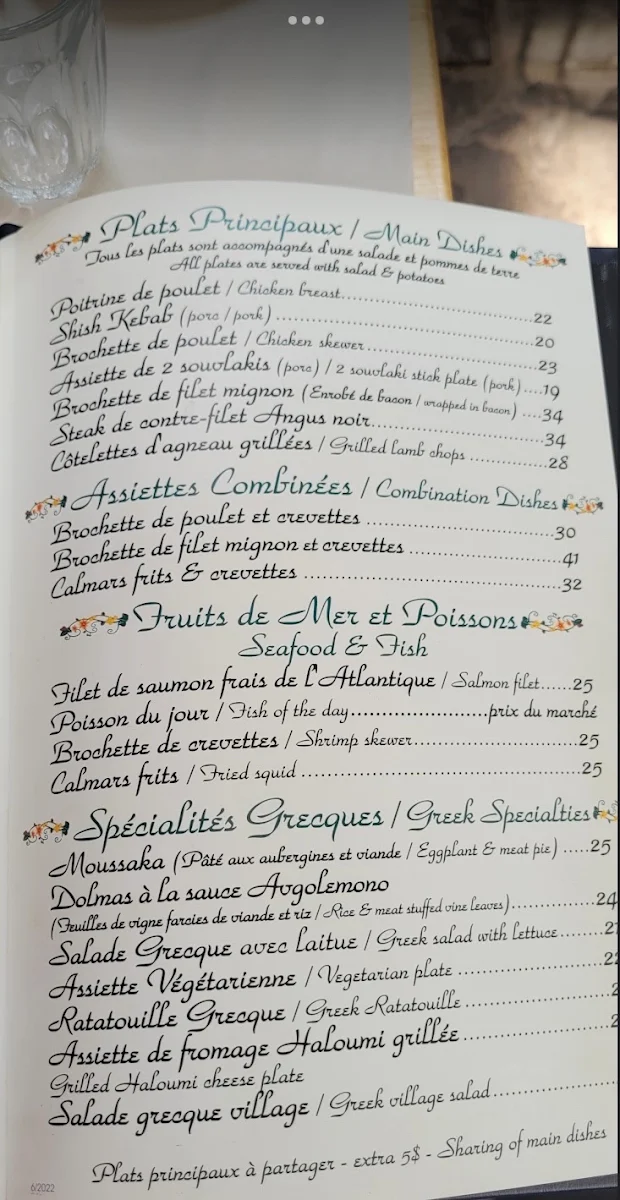 Plats Principaux / Main Dishes
Tous les plats sont accompagnés d'une salade et pommes de terre
All plates are served with salad & potatoes
Poitrine de poulet / Chicken breast..........22
Shish Kebab (porc / pork)..........20
Brochette de poulet / Chicken skewer..........23
Assiette de 2 souvlakis (porc) / 2 souvlaki stick plate (pork)....19
Brochette de filet mignon (Enrobé de bacon / wrapped in bacon)....34
Steak de contre-filet Angus noir..........34
Côtelettes d'agneau grillées / Grilled lamb chops..........28
Assiettes Combinées / Combination Dishes
Brochette de poulet et crevettes..........30
Brochette de filet mignon et crevettes..........41
Calmars frits & crevettes..........32
Fruits de Mer et Poissons
Seafood & Fish
Filet de saumon frais de l'Atlantique / Salmon filet......25
Poisson du jour / Fish of the day..........prix du marché
Brochette de crevettes / Shrimp skewer..........25
Calmars frits / Fried squid..........25
Spécialités Grecques / Greek Specialties
Moussaka (Pâté aux aubergines et viande / Eggplant & meat pie).....25
Dolmas à la sauce Avgolemono
(Feuilles de vigne farcies de viande et riz / Rice & meat stuffed vine leaves)..........24
Salade Grecque avec laitue / Greek salad with lettuce..........
Assiette Végétarienne / Vegetarian plate..........
Ratatouille Grecque / Greek Ratatouille..........
Assiette de fromage Haloumi grillée..........
Grilled Haloumi cheese plate
Salade grecque village / Greek village salad..........
Plats principaux à partager - extra 5$ - Sharing of main dishes
6/2022